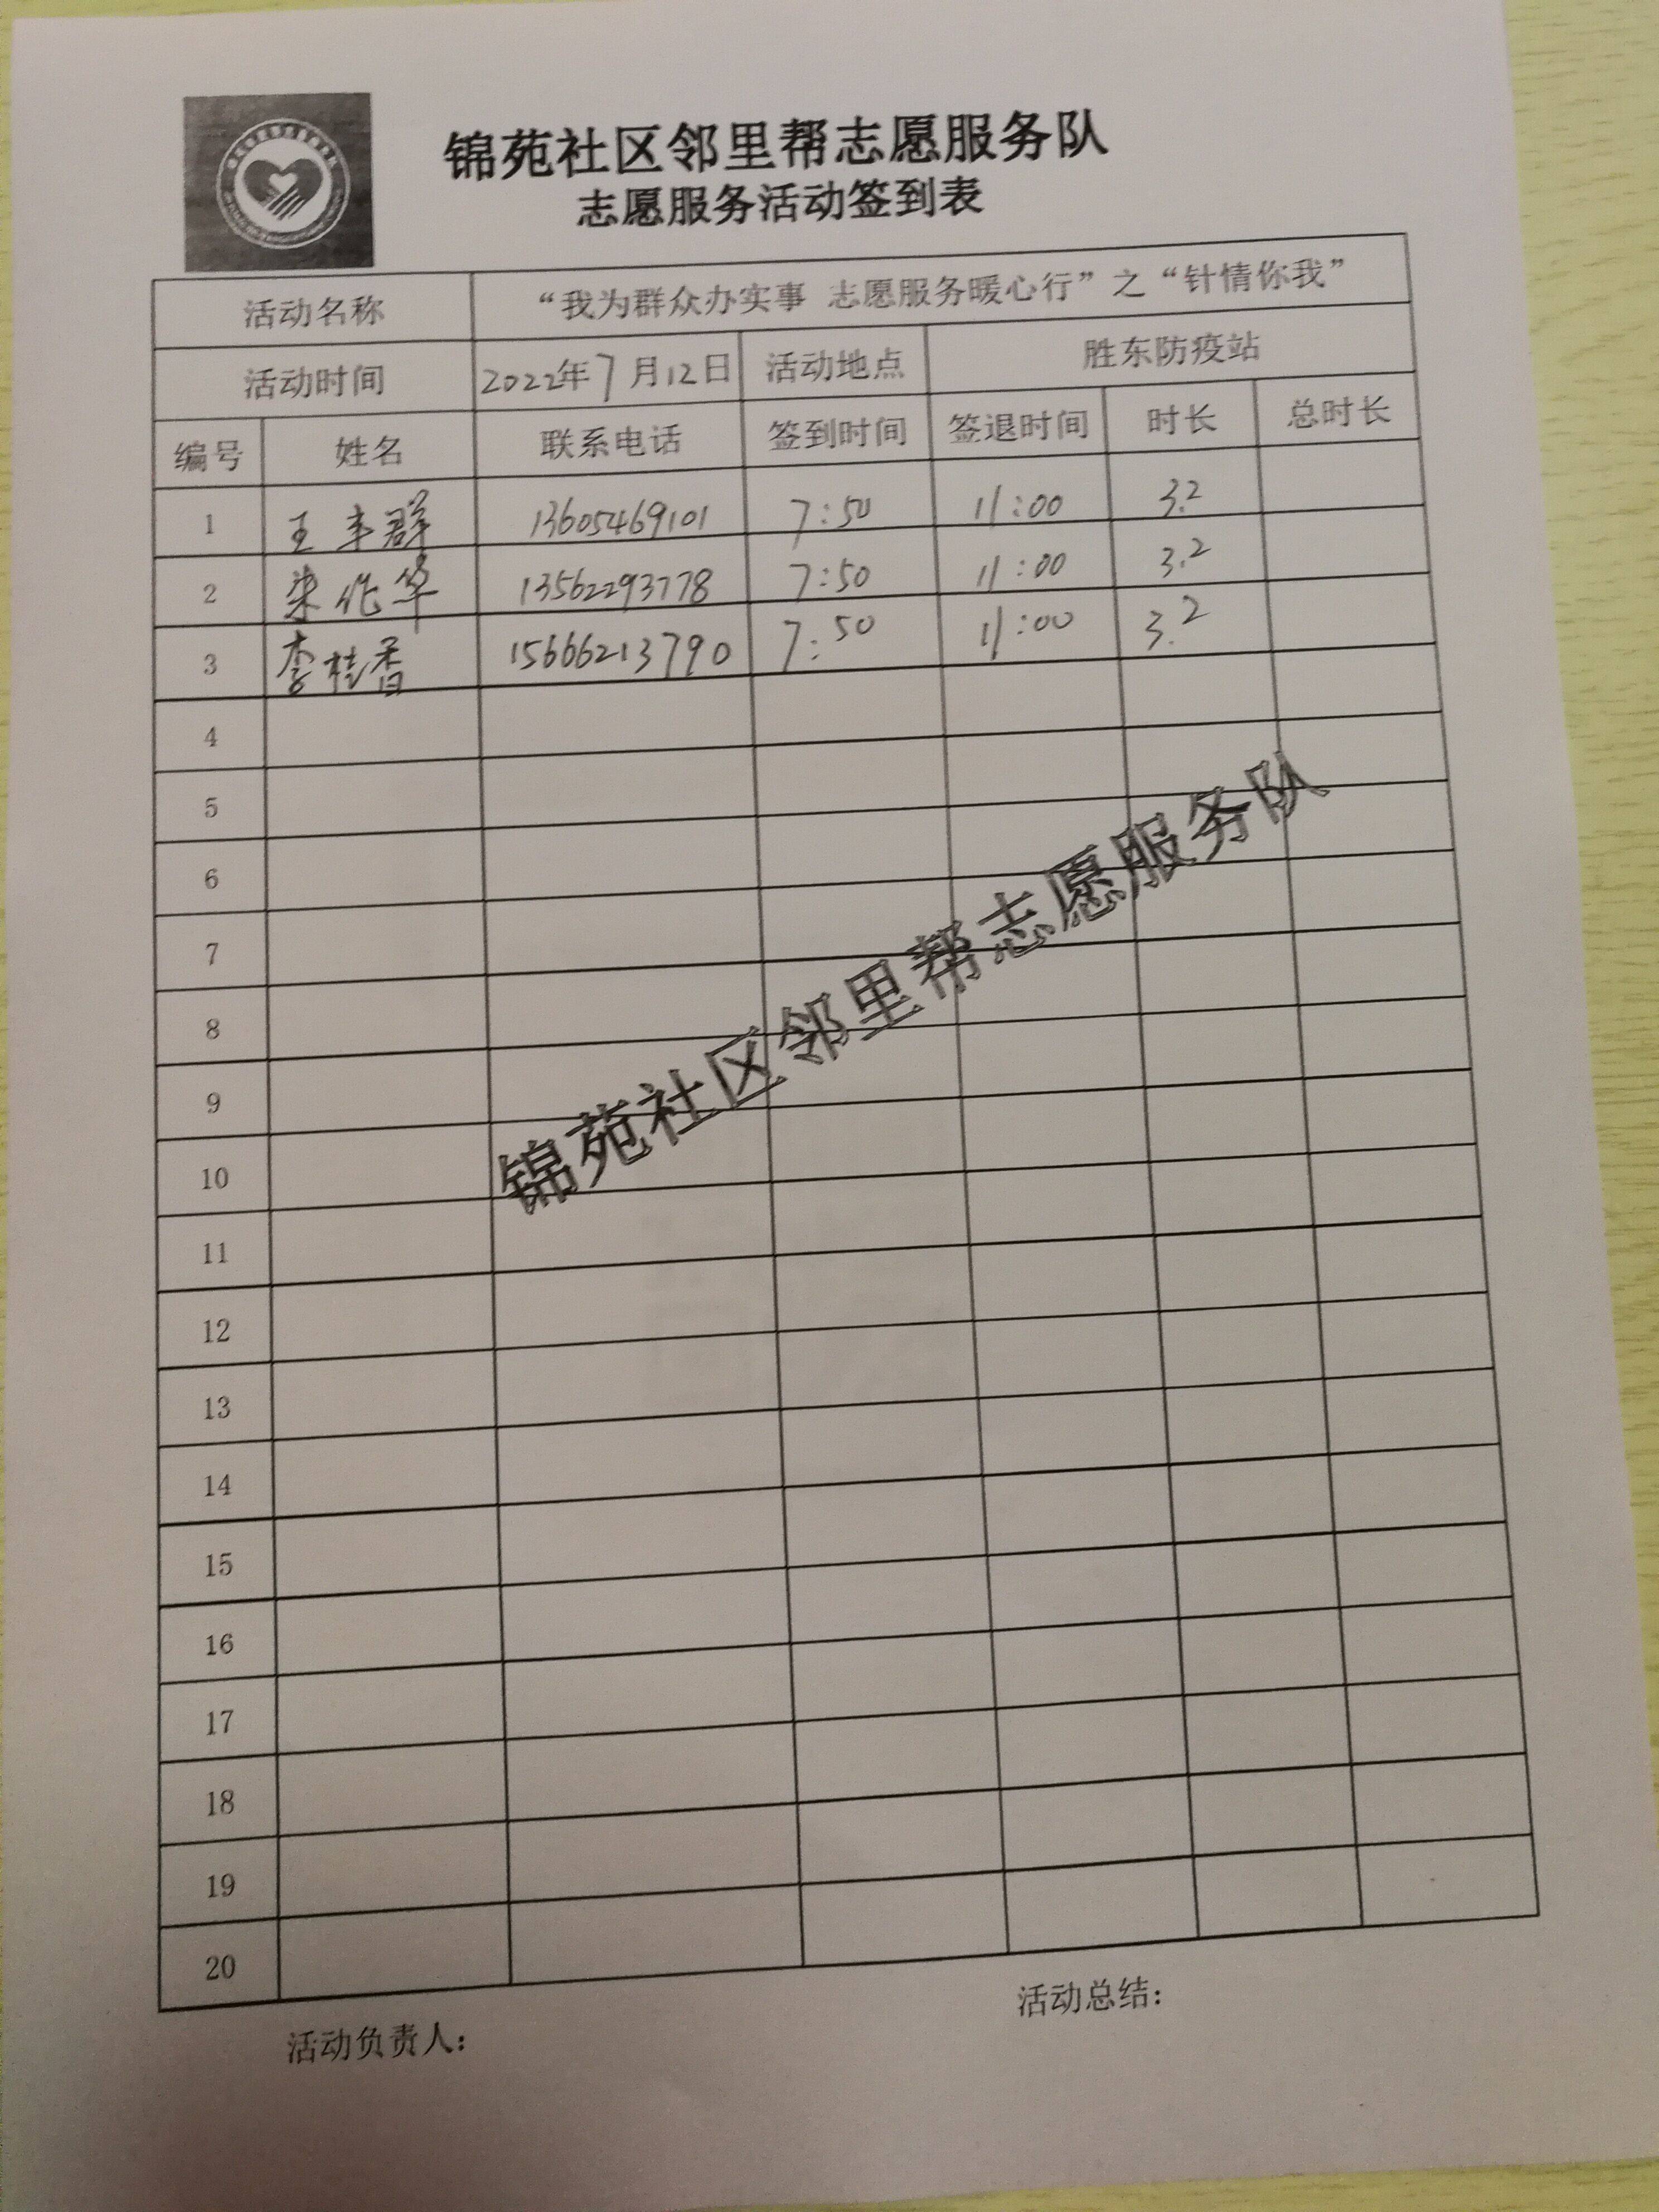 锦苑社区邻里帮志愿服务队
志愿服务活动签到表
活动名称 “我为群众办实事 志愿服务暖心行”之“针情你我”
活动时间 2022年7月12日 活动地点 胜东防疫站
编号 姓名 联系电话 签到时间 签退时间 时长 总时长
1 王丰群 13605469101 7:50 11:00 3.2
2 作华 13562293778 7:50 11:00 3.2
3 李桂香 15666213790 7:50 11:00 3.2
4
5
6
7
8
9
10
11
12
13
14
15
16
17
18
19
20
锦苑社区邻里帮志愿服务队
活动负责人： 活动总结：